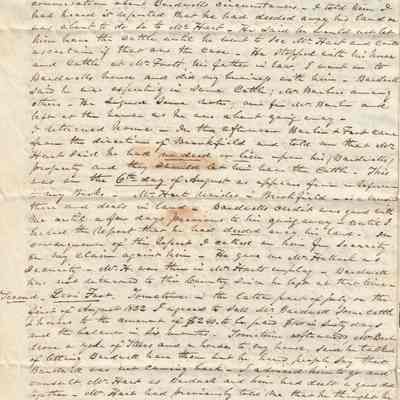 conversation about Bardwells circumstances - I told him I
had heard it reported that he had deeded away his land or
was about to do so to Mr Hart - He said he would not let
him have the Cattle until he went to see Mr Hart and could
ascertain if that was the case - He stopped with his horse
and Cattle at Mr Fasts his father in law, I went on to
Bardwells house and did my business with him - Bardwell
said he was expecting in some Cattle; Mr Barbers among
others - He signed some notes; one for Mr and
left at the house as he was about going away -
I returned home - In the afternoon & Fast came
from the direction of Brookfield and told me that Mr
Hart said he had no deed or lien upon his (Bardwells)
property and they let him have the Cattle This
was on the 6th day of August as appears from a reference
my Books - Mr Hart resides in Brookfield is a
there and deals in land - Bardwells credit was good with
me until a few days previous to his going away & until I
heard the report that he had deeded away his land - In
consequence of this report I called on him for security
on my claim against him - He gave me Mr Hallock as
Security - Mr H. was then in Mr Harts employ - Bardwell
has not returned to this Country since he left at that time -
Second. Levi Fast. Sometime in the latter part of July or the
first of August 1832 I agreed to sell Mr Bardwell Some cattle
& horses to the amount of to be paid in sixty days
and the balance in six months - Sometime afterwards Mr
down a yoke of Steers and a horse to my house, said he talked
of letting Bardwell have them but he heard people say that
Bardwell was not coming back - I advised him to go and
consult Mr Hart as Bardwell and him had dealt a good deal
together - Mr Hart had previously told me that he thought he